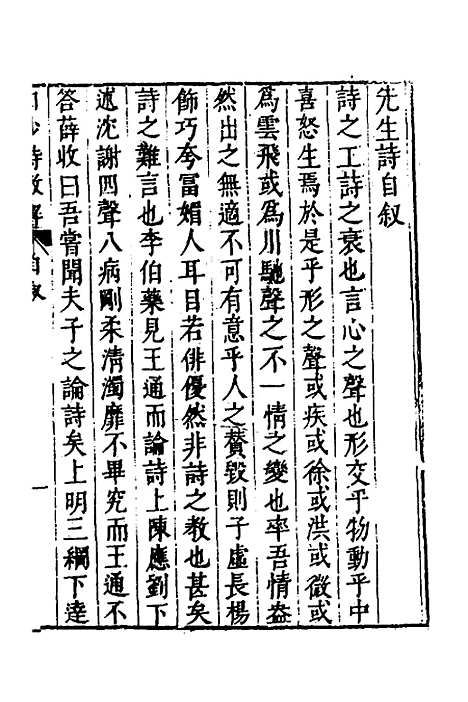 先生詩自叙
詩之工詩之衰也言心之聲也形交乎物動乎中
喜怒生焉於是乎形之聲或疾或徐或洪或微或
爲雲飛或爲川馳聲之不一情之變也率吾情盎
然出之無適不可有意乎人之贊毀則子虛長楊
飾巧夸富媚人耳目若俳優然非詩之教也甚矣
詩之難言也李伯藥見王通而論詩上陳應劉下
述沈謝四聲八病剛柔清濁靡不畢究而王通不
答薛收曰吾嘗聞夫子之論詩矣上明三綱下達
白沙詩教解 自叙 一